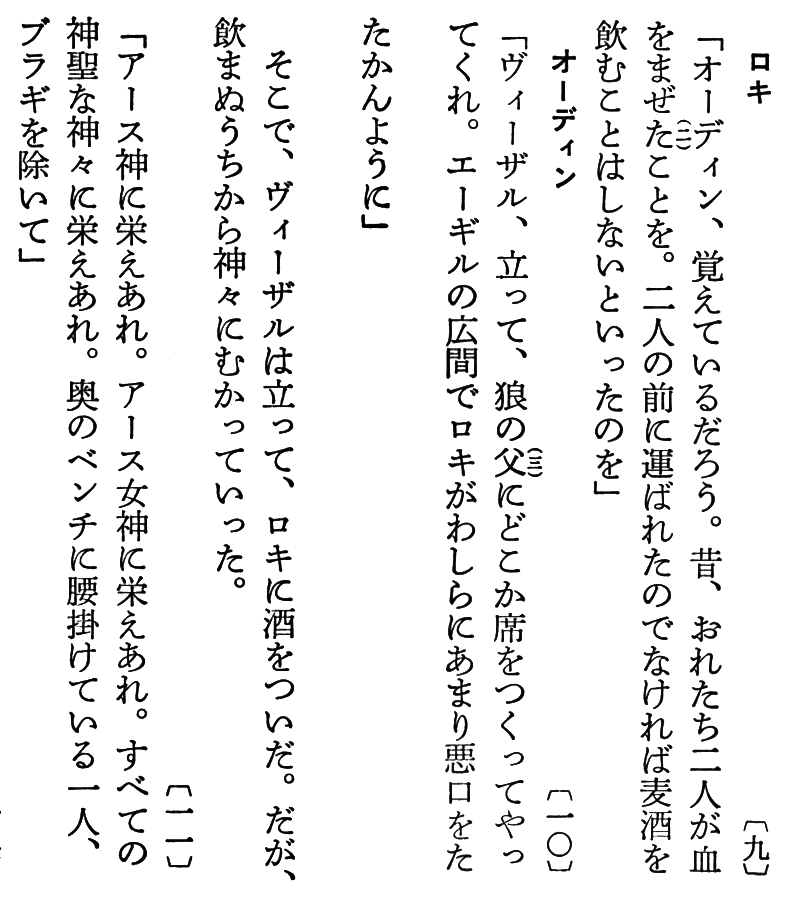 ロキ 〔九〕
「オーディン、覚えているだろう。昔、おれたち二人が血
をまぜた(二)ことを。二人の前に運ばれたのでなければ麦酒を
飲むことはしないといったのを」
オーディン 〔一〇〕
「ヴィーザル、立って、狼の父(三)にどこか席をつくってやっ
てくれ。エーギルの広間でロキがわしらにあまり悪口をた
たかんように」
そこで、ヴィーザルは立って、ロキに酒をついだ。だが、
飲まぬうちから神々にむかっていった。
〔一一〕
「アース神に栄えあれ。アース女神に栄えあれ。すべての
神聖な神々に栄えあれ。奥のベンチに腰掛けている一人、
ブラギを除いて」